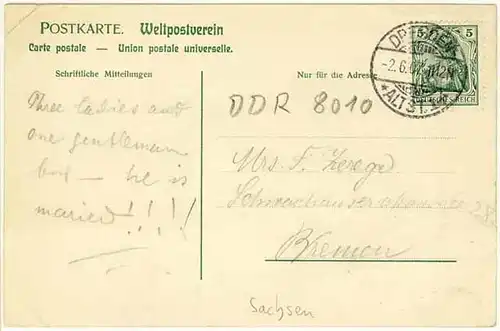 POSTKARTE. Weltpostverein
Carte postale — Union postale universelle.
Schriftliche Mitteilungen
Nur für die Adresse
DRESDEN
-2.6.07.
*ALTST.
5
DEUTSCHES REICH
DDR 8010
Three ladies and
one gentleman
but — he is
maried!!!!
Mrs. F.
Bremen
Sachsen